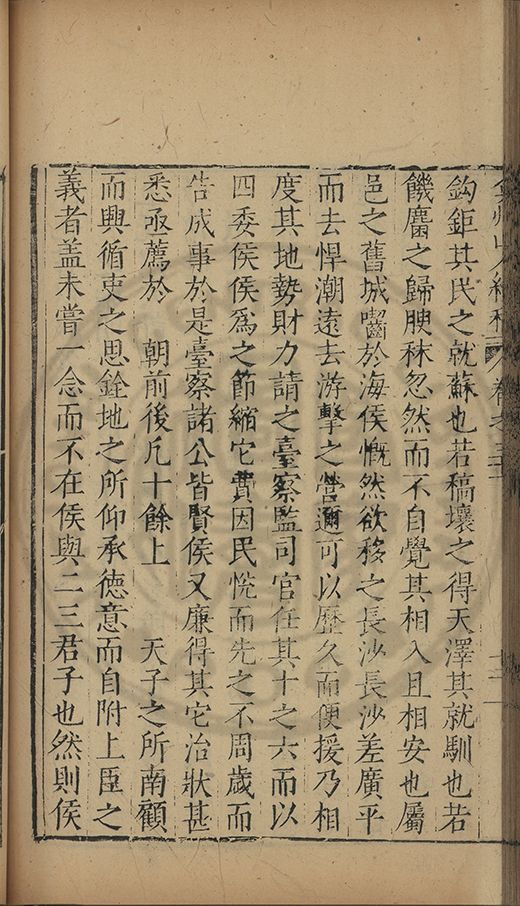 弇州山人續稿 卷之三十
鈎鉅其民之就蘇也若稿壤之得天澤其就馴也若
饑麕之歸腴秣忽然而不自覺其相入且相安也屬
邑之舊城囓於海侯慨然欲移之長沙長沙差廣平
而去悍潮遠去游擊之營邇可以歷久而便援乃相
度其地勢財力請之臺察監司官任其十之六而以
四委侯侯爲之節縮它費因民悅而先之不周歲而
告成事於是臺察諸公皆賢侯又廉得其它治狀甚
悉亟薦於 朝前後凡十餘上 天子之所南顧
而興循吏之思銓地之所仰承德意而自附上臣之
義者盖未嘗一念而不在侯與二三君子也然則侯